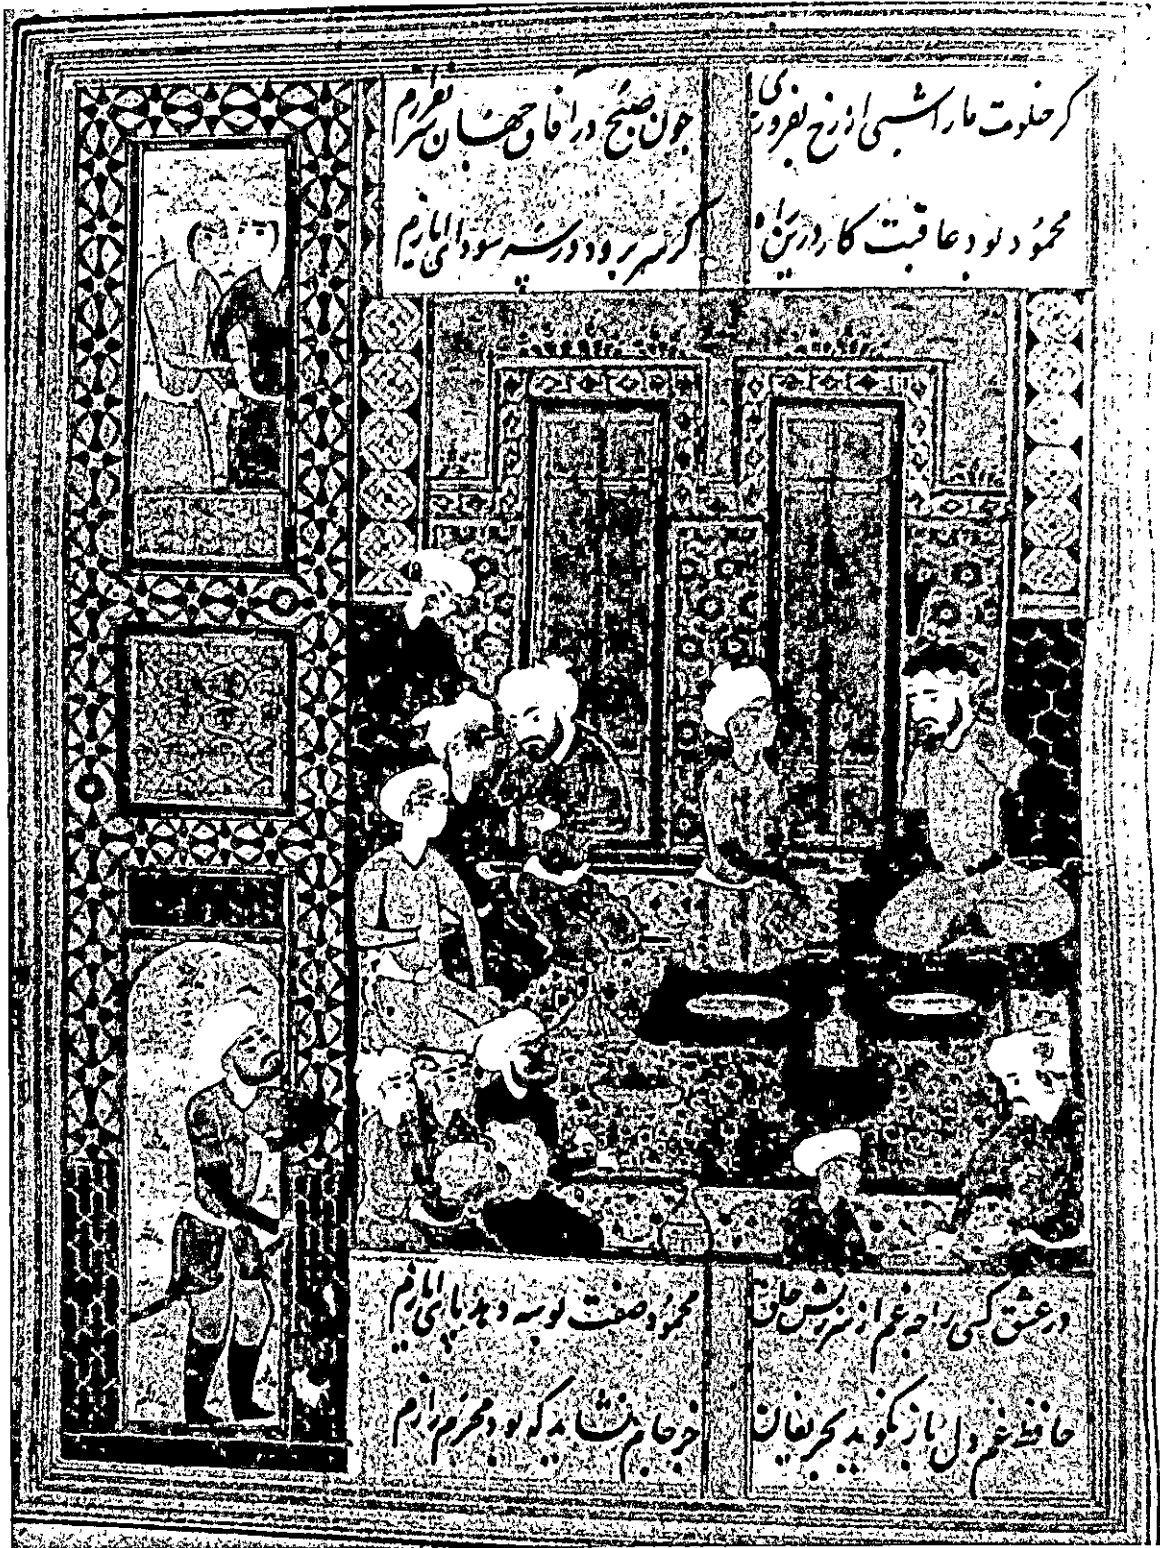 کر خلوت ما را شبی از رخ بفروزی جون صبح در آفاق جهان سر بفرازم
محمود بود عاقبت کار درین راه کر سر برود در سر سودای ایازم
در عشق کسی را چه غم از سرزنش خلق محمود صفت بوسه دهد پای ایازم
حافظ غم دل باز نکوید بحریفان جز جام نشاید که بود محرم رازم